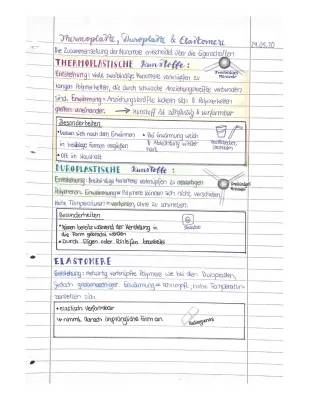 Thermoplaste, Duroplaste & Elastomere
29.05.20
Die Zusammensetzung der Monomere entscheidet über die Eigenschaften
THERMOPLASTISCHE Kunstoffe:
Entstehung: viele zweibindige Monomere verknüpfen zu
langen Polymerketten, die durch schwache Anziehungskräfte verbunden
sind. Erwärmung = Anziehungskräfte lockern sich & Polymerketten
gleiten aneinander. → Kunstoff ist zähflüssig & verformbar
Zweibindiges Monomer
Besonderheiten
• lassen sich nach dem Erwärmen
in beliebige Formen
• Oft im Haushalt
• Bei Erwärmung weich
& Abkühlung wieder
hart
DUROPLASTISCHE Kunstoffe:
Entstehung: Dreibindige Monomere verknüpfen zu
Polymeren. Erwärmung = Polymere können sich nicht verschieben.
Hohe Temperaturen = verkohlen, ohne zu schmelzen.
Dreibindiges Monomer
Besonderheiten
• Wären bereits während der Herstellung in
die Form gebracht werden
• Durch Sägen oder Bohren bearbeitet
Steckdose
ELASTOMERE
Entstehung: netzartig verknüpfte Polymere wie bei den Duroplasten,
jedoch grobmaschiger. Erwärmung = schrumpft, hohe Temperatur =
zersetzen sich
• elastisch verformbar
→ nimmt danach ursprüngliche Form an.
Radiergummi